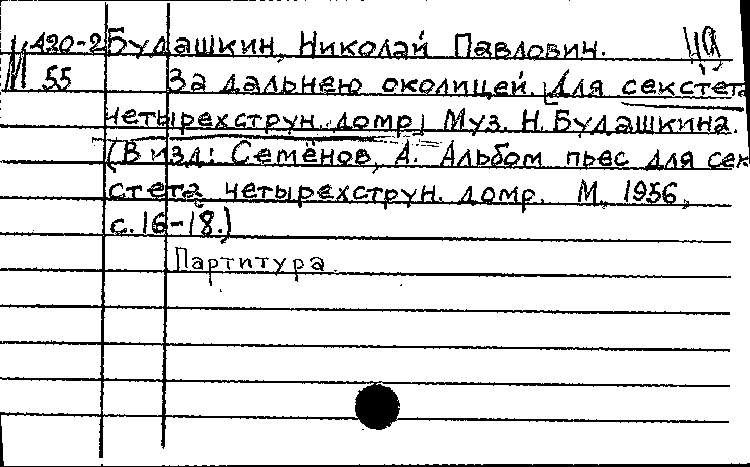 М А20-2 Будашкин, Николай Павлович.
55 За дальнею околицей. [Для секстета
четырехструн. домр] Муз. Н. Будашкина.
(В изд: Семёнов, А. Альбом пьес для сек
стета четырехструн. домр. М, 1956,
с. 16-18.)
Партитура